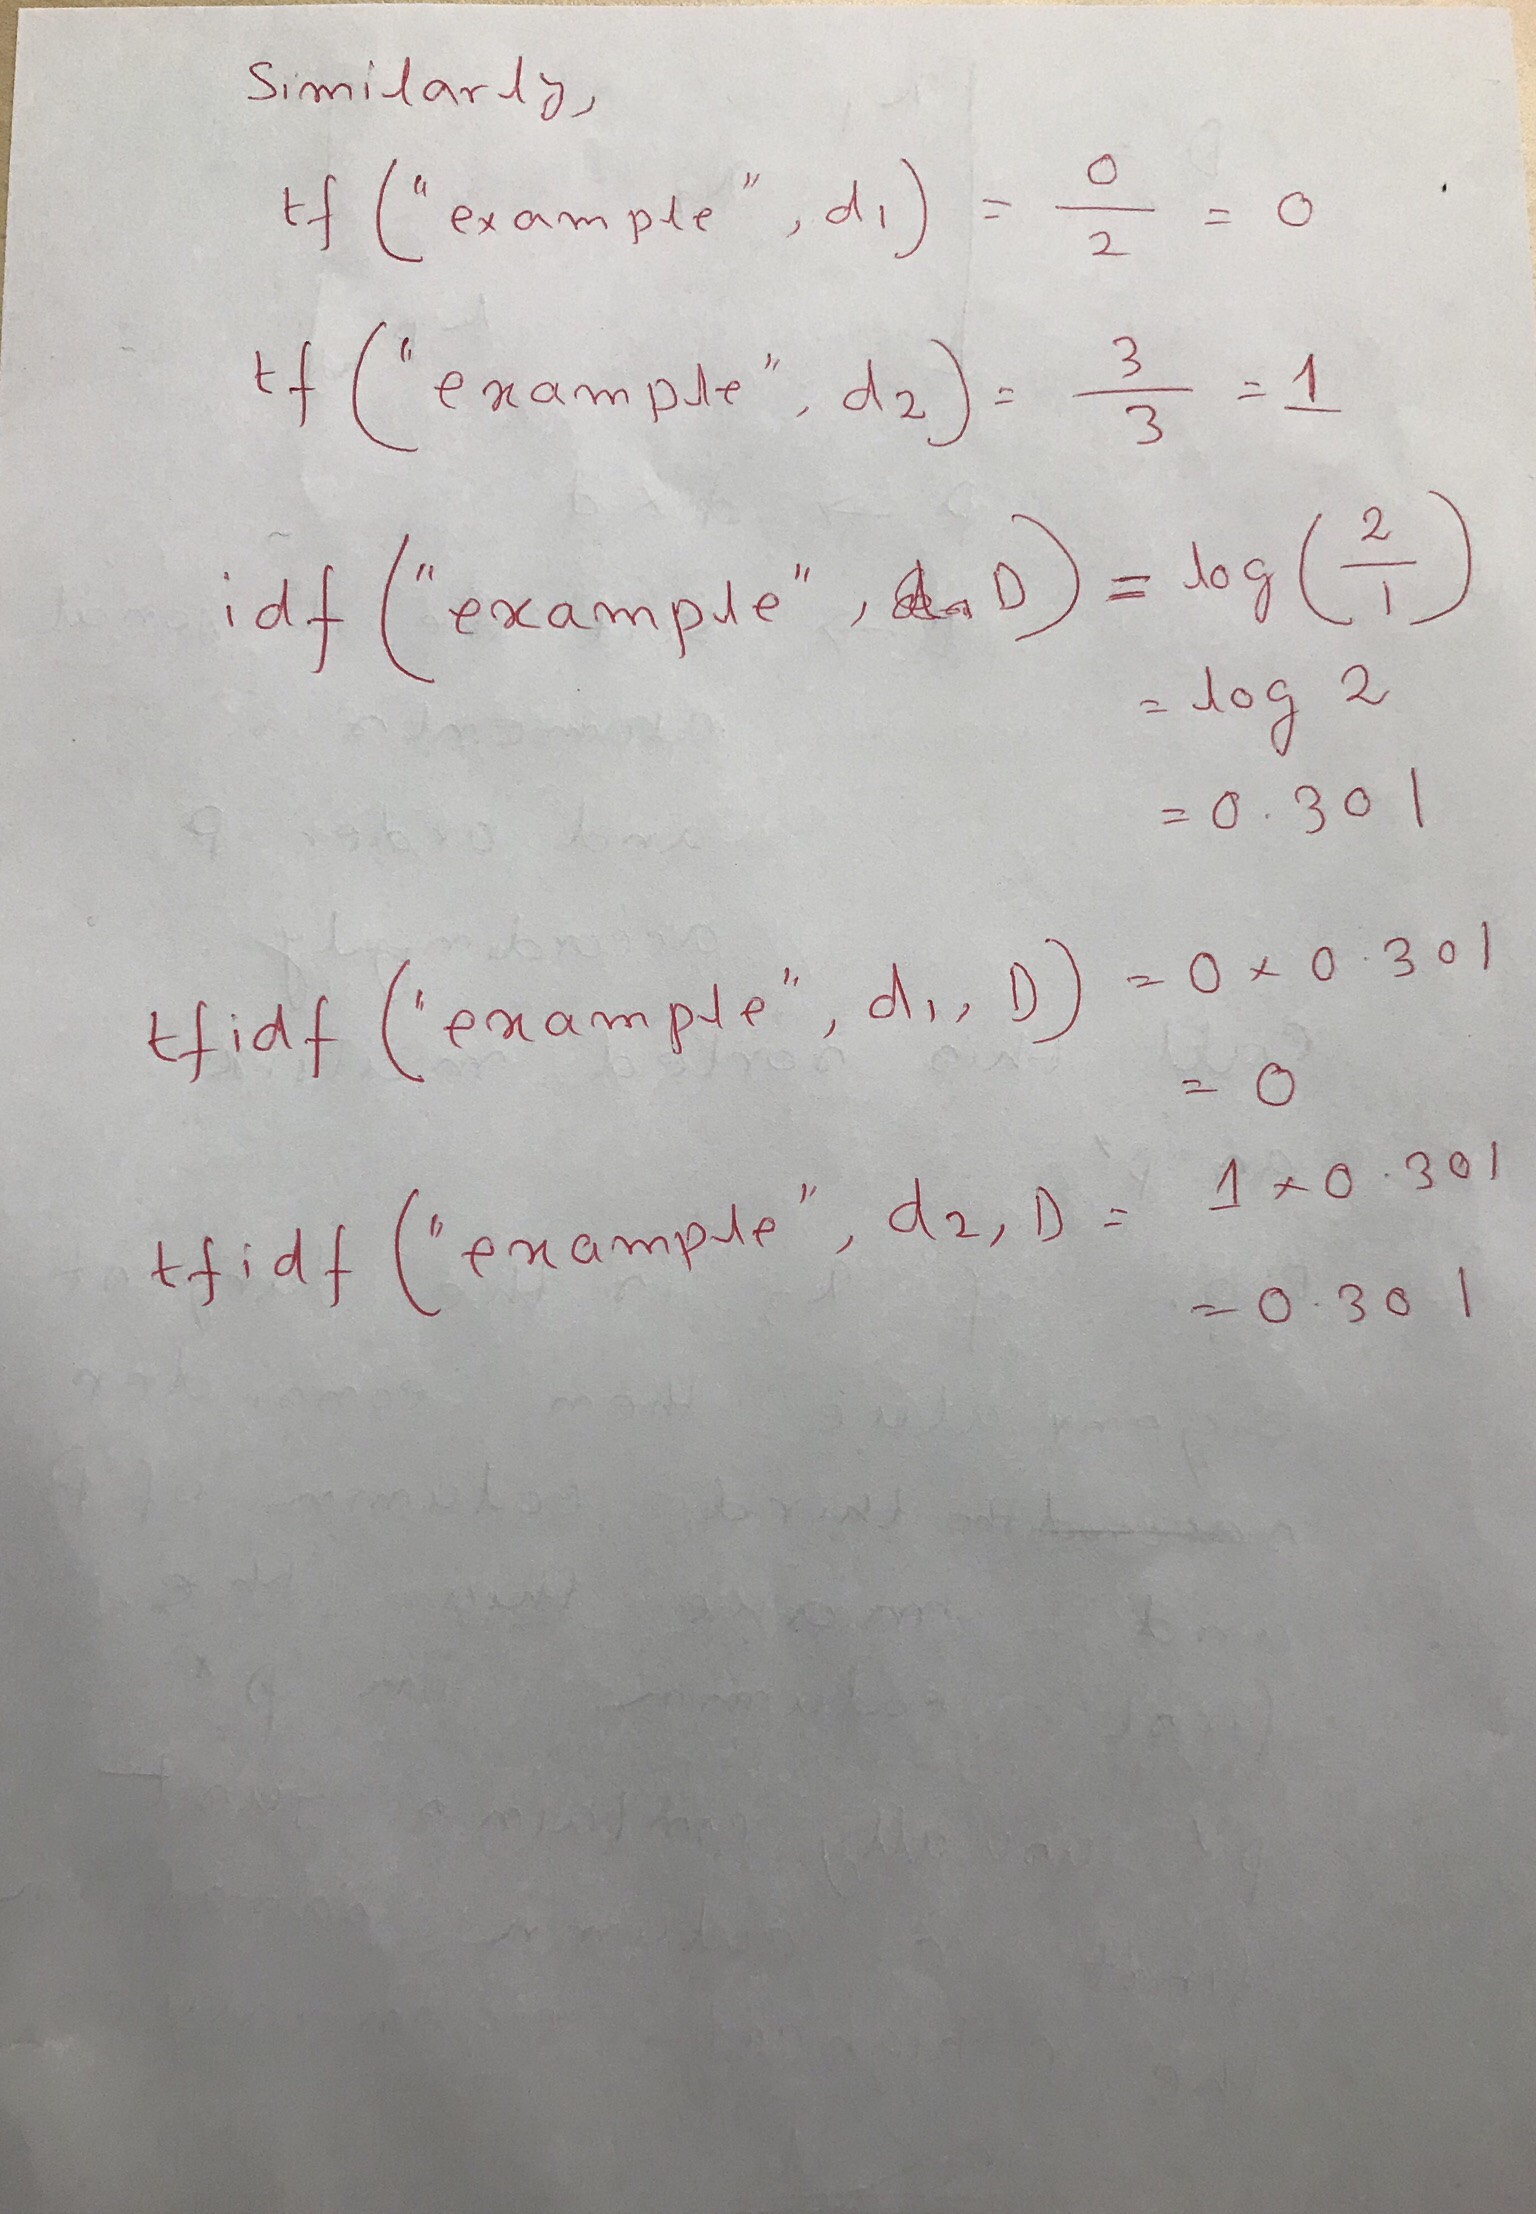 Similarly,
tf ("example", d1) = 0/2 = 0
tf ("example", d2) = 3/3 = 1
idf ("example", D) = log (2/1)
= log 2
= 0.301
tfidf ("example", d1, D) = 0 × 0.301
= 0
tfidf ("example", d2, D = 1 × 0.301
= 0.301